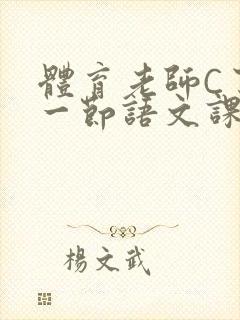 體育老師C
一節語文課
楊文武